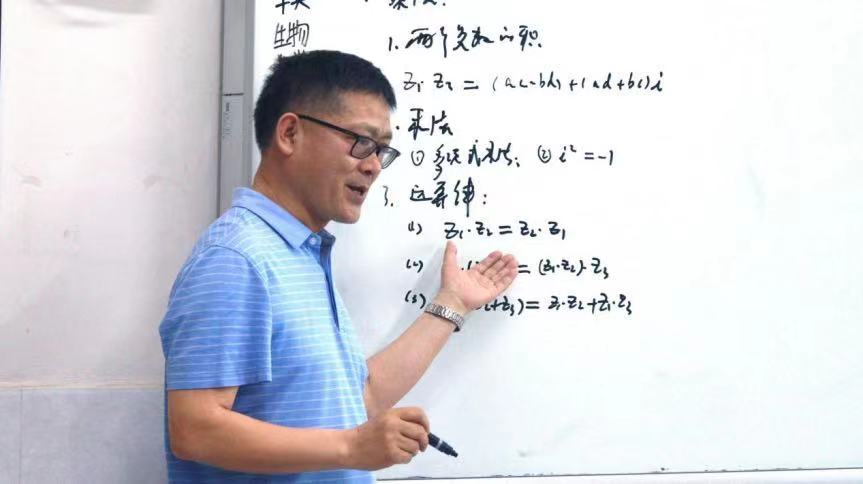 生物
1. 两个复数的积
z₁·z₂ = (ac-bd)+(ad+bc)i
乘法
① 多项式乘法; ② i² = -1
3. 运算律:
(1) z₁·z₂ = z₂·z₁
(2) = (z₁·z₂)·z₃
(3) z₂+z₃) = z₁·z₂+z₁·z₃